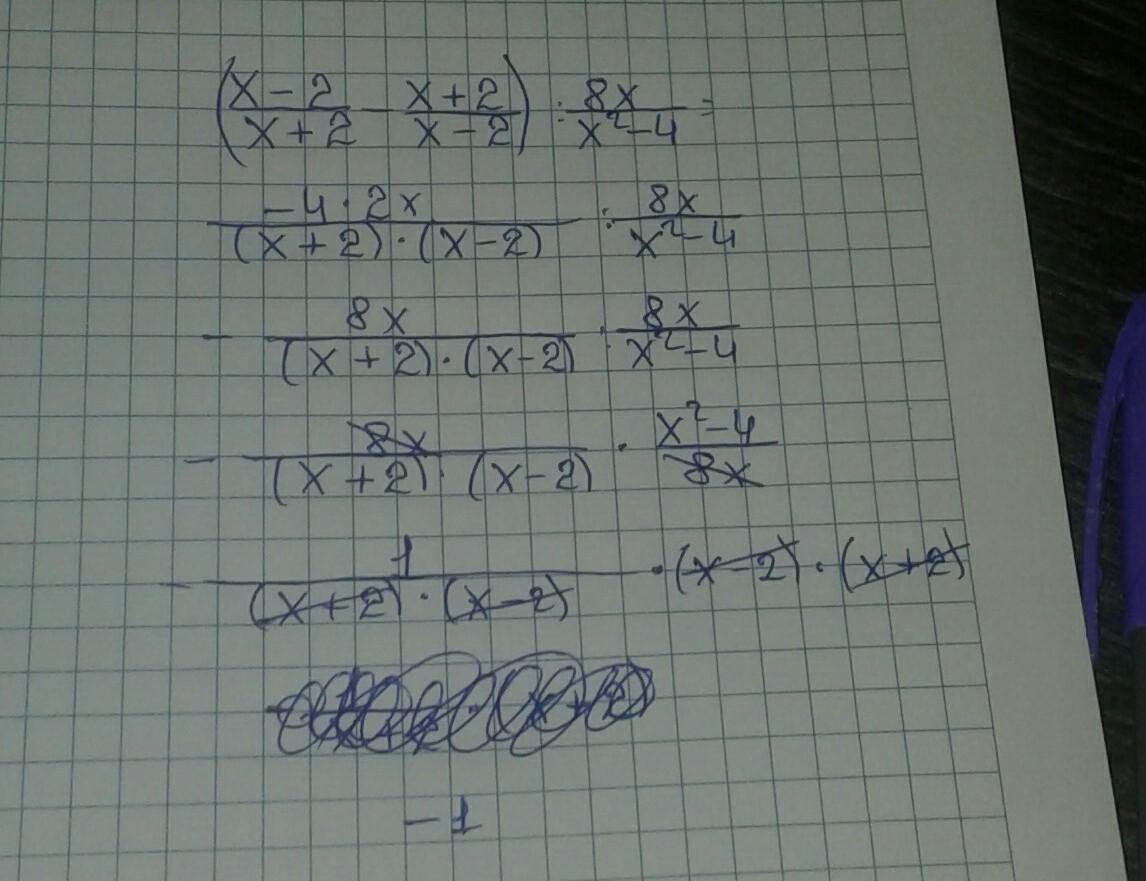 (x-2/x+2 - x+2/x-2) : 8x/x²-4 =
-4·2x/(x+2)·(x-2) : 8x/x²-4
- 8x/(x+2)·(x-2) : 8x/x²-4
- 8x/(x+2)·(x-2) · x²-4/8x
- 1/(x+2)·(x-2) · (x-2)·(x+2)
-1